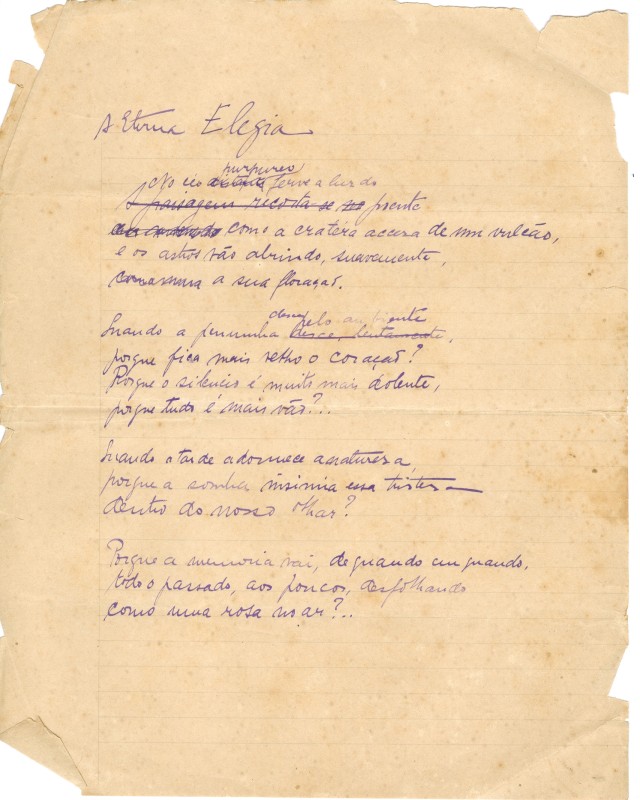 A Eterna Elegia
purpureo
No céo distante ferve a luz do
A paisagem recosta-se no poente
como a cratéra accesa de um vulcão,
e os astros vão abrindo, suavemente,
a sua floração.
desce pelo ambiente
Quando a penumbra desce, lentamente,
porque fica mais velho o coração?
Porque o silencio é muito mais dolente,
porque tudo é mais vão?..
Quando a tarde adormece a natureza,
porque a sombra insinua essa tristeza
dentro do nosso olhar?
Porque a memoria vai, de quando em quando,
todo o passado, aos poucos, desfolhando
como uma rosa no ar?..